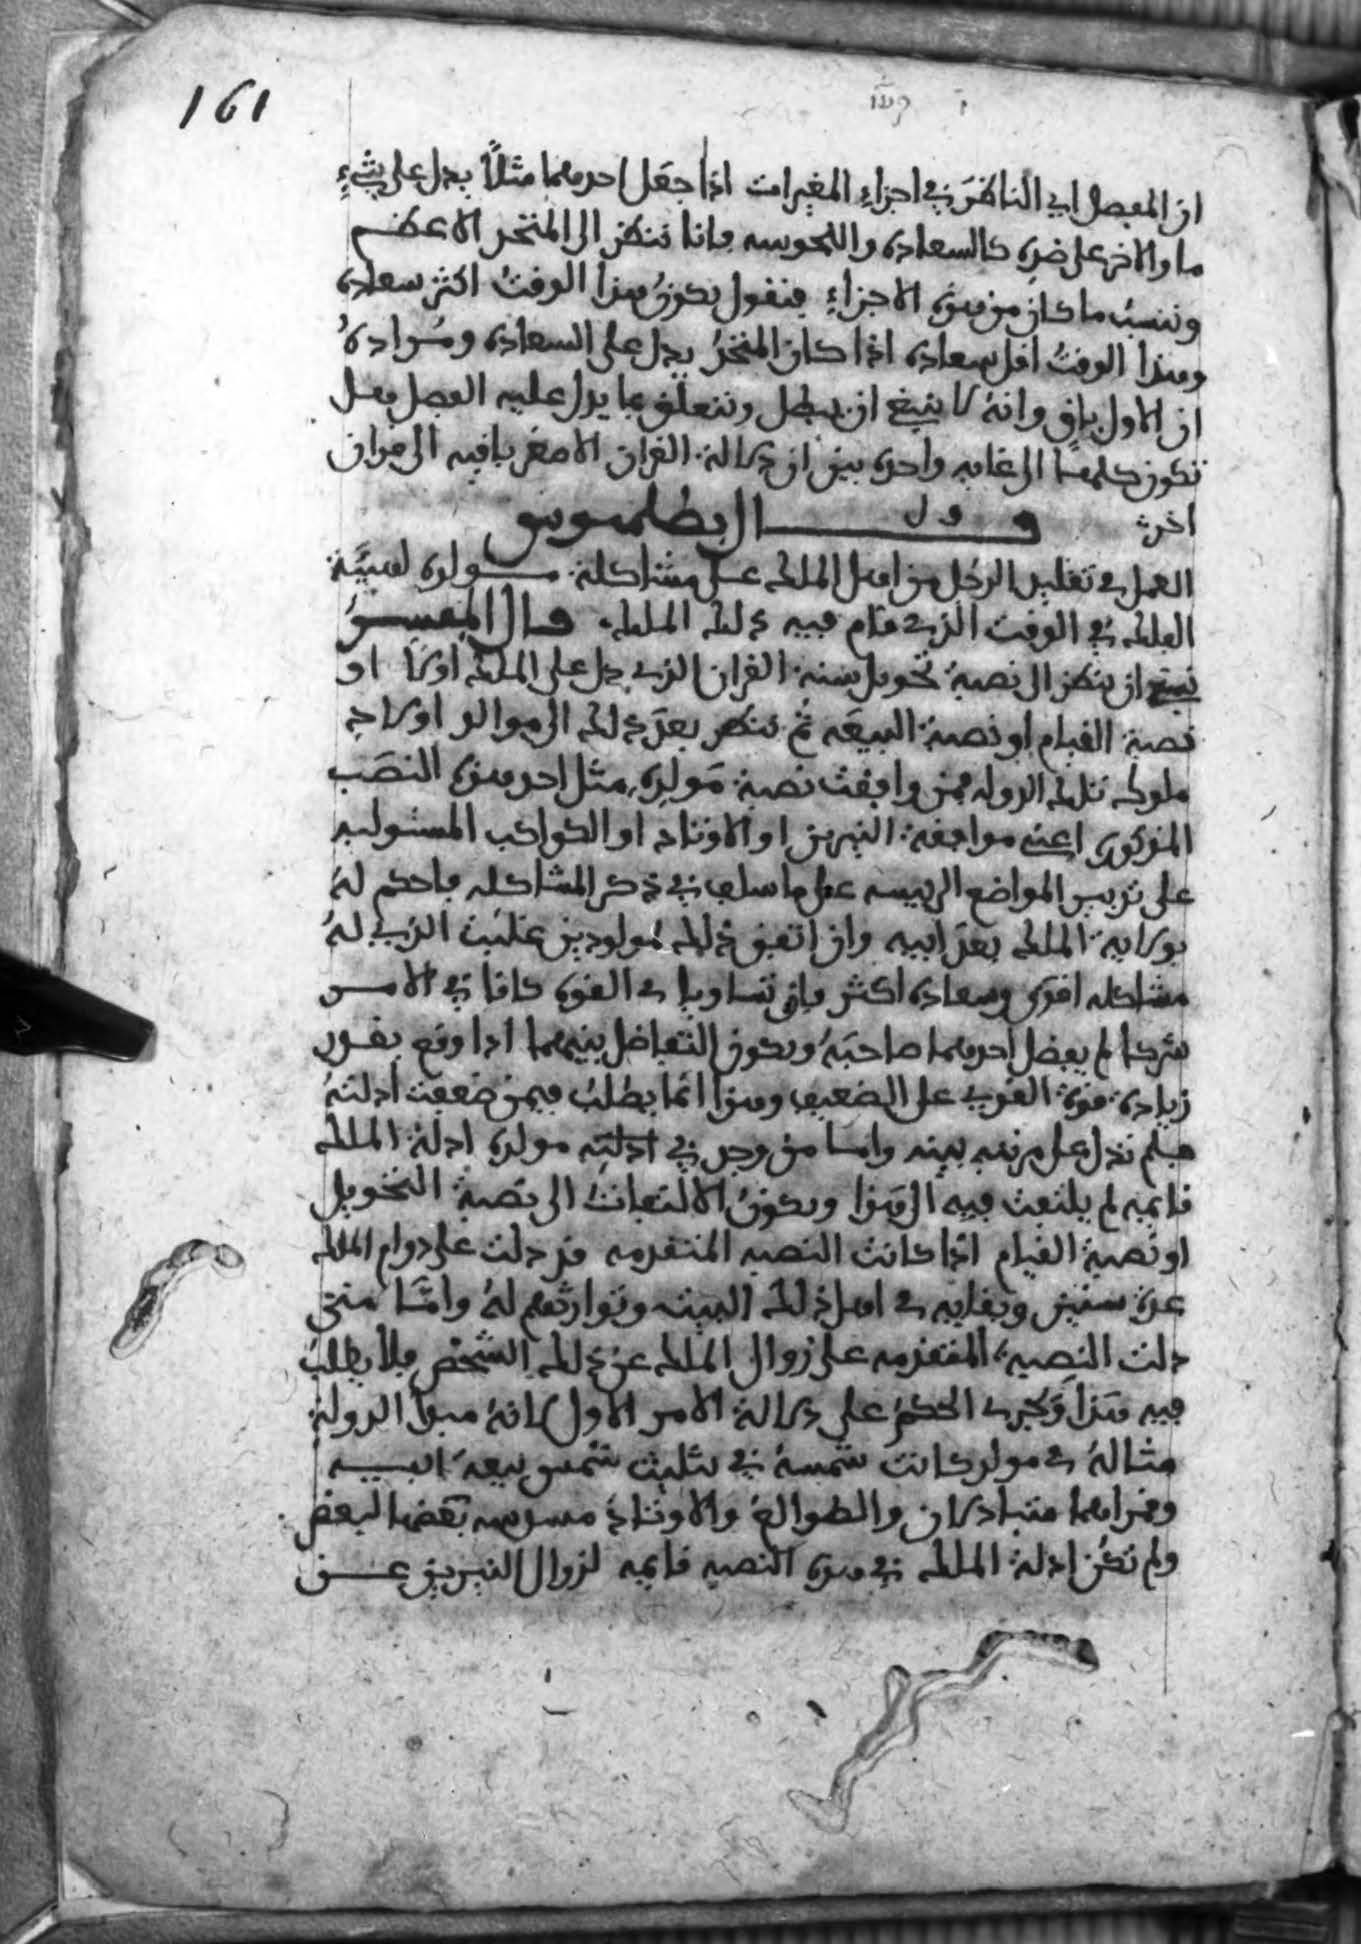 161
ان المفصل ابي الناظر في اجزاء المغيرات اذا جعل احدهما مثلاً يدل على شيء
ما والاخر على ضده كالسعاده والنحوسه فانا ننظر الى المنتحر الاعظم
وننسب ما كان من هذه الاجزاء فنقول يكون هذا الوقت اكثر سعاده
وهذا الوقت اقل سعاده اذا كان يدل على السعاده ومراده
ان الاول باق وانه لا ينبغي ان يبطل ونتعلق بما يدل عليه الفصل
تكون كلها الى غايه واحده بين ان دلالة القران الاصغر باقيه الى قران
اخر قول ال بطلميوس
العمل في تقليد الرجل من اهل الملك على مشاكلة مولده لهيئة
الفلك في الوقت الذي قام فيه ذلك الملك قال المفسر
ينبغي ان ينظر الى نصبة تحويل سنة القران الذي دل على الملك اولا او
نصبة القيام او نصبة البيعه ثم ننظر بعد ذلك الى مواليد اولاد
ملوك تلك الدوله فمن وافقت نصبة مولده مثل احد هذه النصب
المذكوره اعني موافقة النيرين او الاوتاد او الكواكب المستوليه
على تربيب المواضع الرييسه على ما سلف في ذكر المشاكله فاحكم له
بولاية الملك بعد ابيه وان اتفق ذلك لمولودين غلبت الذي له
مشاكله اقوى وسعاده اكثر فان تساويا في القوه كانا في الامر
شركا لم يفضل احدهما صاحبه ويكون التفاضل بينهما اذا وقع بقدر
زيادة قوة القوي على الضعيف وهذا انما يطلب فيمن ضعفت ادلته
فلم تدل على مرتبه بينه واما من وجد في ادلته مولده ادلة الملك
قايمه لم يلتفت فيه الى هذا ويكون الالتفات الى نصبة التحويل
او نصبة القيام اذا كانت النصبه المتقدمه قد دلت على دوام الملك
عدة سنين وبقايه في اهل ذلك البيت وتوارثهم له واما متى
دلت النصبه المتقدمه على زوال الملك عن ذلك الشخص فلا يطلب
فيه هذا ويجري الحكم على دلالة الامر الاول لانه مبدا الدولة
مثاله في مولد كانت شمسه في تثليث شمس بيعة ابيه
وقمراهما متبادلان والطوالع والاوتاد بعضها لبعض
ولم تكن ادلة الملك في هذه النصبه قايمه لزوال النيرين عن